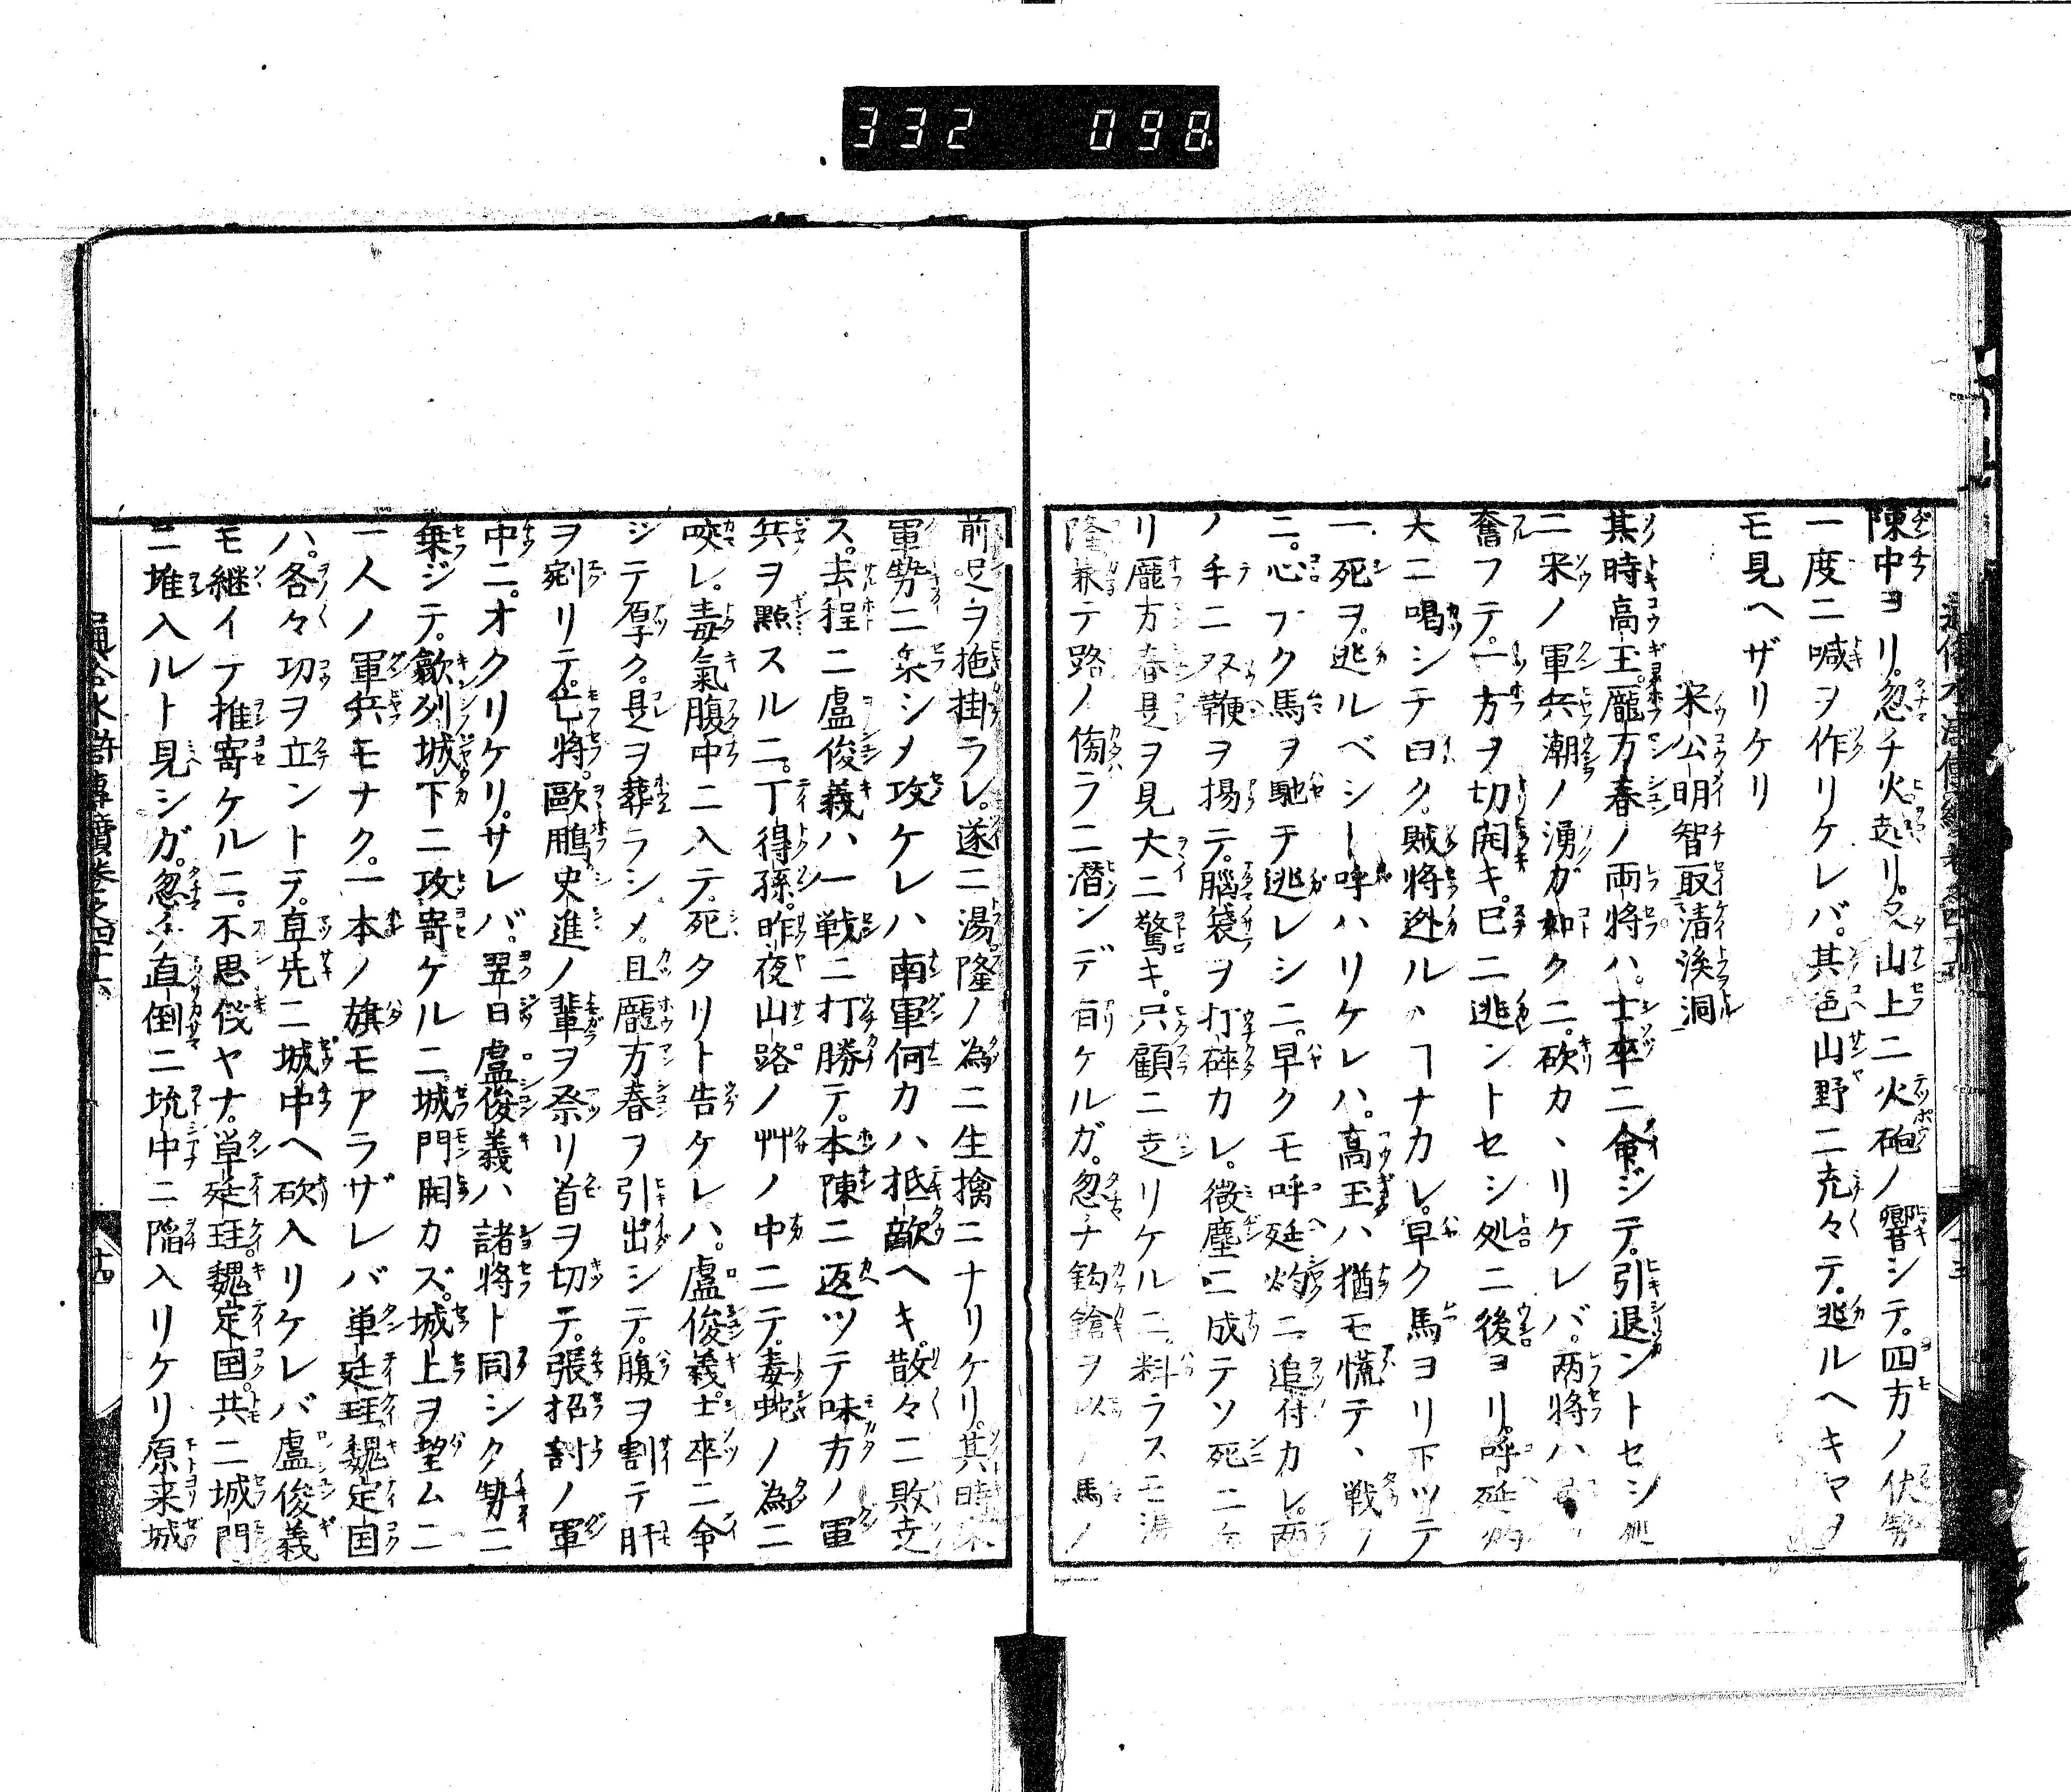 332 098
陳中ヨリ。忽チ火起リ。又山上ニ火砲ノ響シテ。四方ノ伏勢
一度ニ喊ヲ作リケレバ。其邑山野ニ充々テ。逃ルヘキヤヲ
モ見ヘザリケリ
宋公明智取清渓洞
其時高玉。龐万春ノ両将ハ。士卒ニ命ジテ。引退ントセシ処
ニ宋ノ軍兵潮ノ湧ガ如クニ。砍カヽリケレバ。両将ハ
奮フテ。一方ヲ切開キ。已ニ逃ントセシ処ニ後ヨリ。呼延灼
大ニ喝シテ曰ク。賊将逃ルヽヿナカレ。早ク馬ヨリ下ツテ
一死ヲ。逃ルベシト呼ハリケレハ。高玉ハ猶モ慌テヽ戦ノ
ニ。心フク馬ヲ馳テ逃レシニ。早クモ呼延灼ニ追付カレ。両
ノ手ニ双鞭ヲ揚テ。脳袋ヲ打砕カレ。微塵ニ成テソ死ニケ
リ龐万春是ヲ見大ニ驚キ。只顧ニ走リケルニ。料ラスモ湯
隆兼テ路ノ傍ラニ潜ンデ有ケルガ。忽チ鈎鎗ヲ以ノ馬ノ
前足ヲ拖掛ラレ。遂ニ湯隆ノ為ニ生擒ニナリケリ。其時宋
軍勢ニ乗シメ攻ケレハ南軍何カハ抵敵ヘキ。散々ニ敗走
ス。去程ニ盧俊義ハ一戦ニ打勝テ。本陳ニ返ツテ味方ノ軍
兵ヲ點スルニ。丁得孫。昨夜山路ノ艸ノ中ニテ。毒蛇ノ為ニ
咬レ。毒氣腹中ニ入テ。死タリト告ケレハ。盧俊義。士卒ニ命
ジテ厚ク。是ヲ葬ラシメ。且龐万春ヲ引出シテ。腹ヲ割テ肝
ヲ剜リテ。亡将。歐鵬史進ノ輩ヲ祭リ首ヲ切テ。張招討ノ軍
中ニ。オクリケリ。サレバ。翌日盧俊義ハ諸将ト同シク勢ニ
乗ジテ。歙列城下ニ攻寄ケルニ。城門開カズ。城上ヲ望ムニ
一人ノ軍兵モナク。一本ノ旗モアラザレバ単廷珪魏定国
ハ。各々功ヲ立ントテ。直先ニ城中ヘ砍入リケレバ盧俊義
モ継イテ推寄ケルニ。不思伐ヤナ。単廷珪。魏定国。共ニ城門
ニ堆入ルト見シガ。忽チ直倒ニ坑中ニ陥入リケリ原来城
通俗水滸傳續巻之四十六
十四